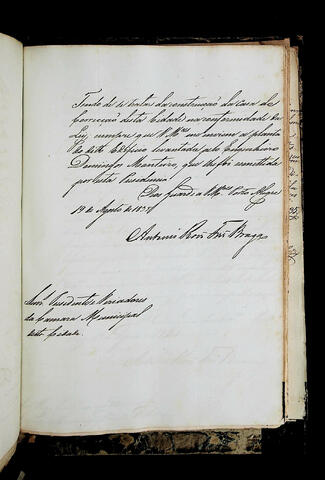 Tendo de se tratar da construcção da casa de
correcção desta Cidade na conformidade da
Ley, cumpre que V. M.ces me enviem a planta
do dito Edificio levantada pelo Engenheiro
Domingos Monteiro, que lhe foi remettida
por esta Presidencia.
Deos Guarde a V. M.ces Porto Alegre
19 de Agosto de 1835
Antonio Roiz Frz Braga
Snrs. Presidente e Veriadores
da Camara Municipal
desta Cidade.